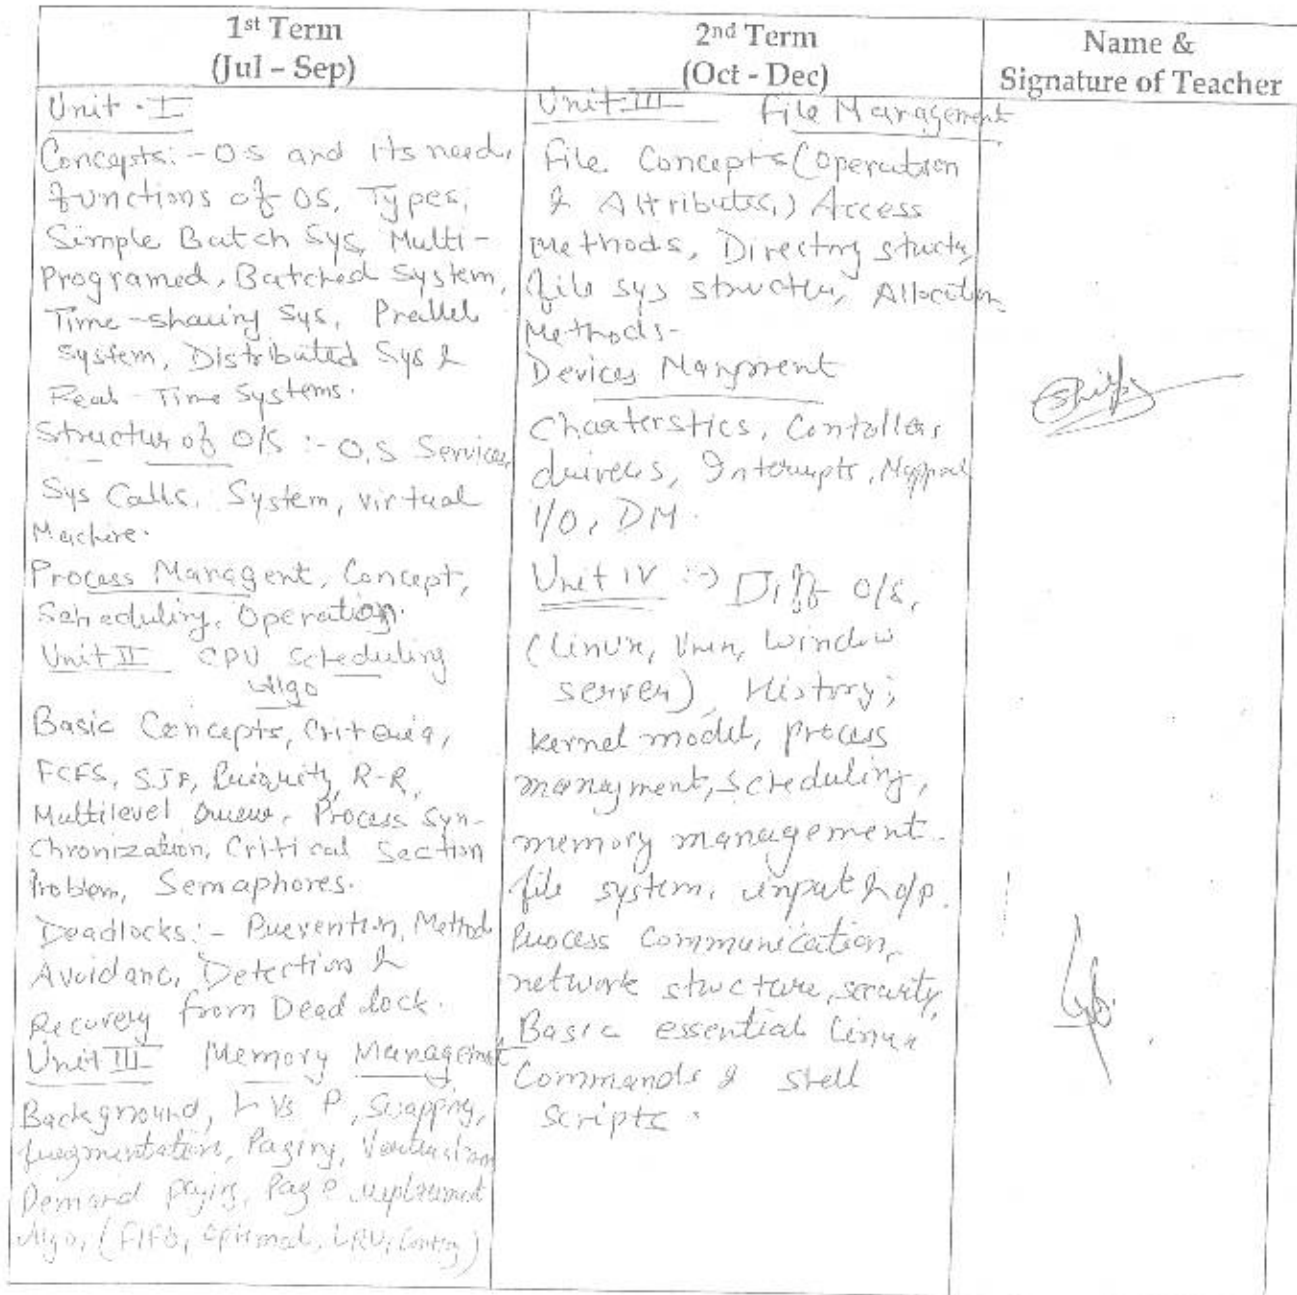 1st Term
(Jul – Sep)
Unit - I
Concepts:- O.S and its need,
functions of OS, Types,
Simple Batch Sys, Multi-
Programed, Batched System,
Time-sharing Sys, Prallel
System, Distributed Sys &
Real-Time Systems.
Structur of O/S :- O.S Services,
Sys Calls, System, virtual
Machine.
Process Managent, Concept,
Scheduling, Operation.
Unit II CPU Scheduling
Algo
Basic Concepts, Criteria,
FCFS, SJF, R-R,
Multilevel Queue, Process Syn-
chronization, Critical Section
Problem, Semaphores.
Deadlocks:- Prevention, Methods
Avoidanc, Detection &
Recovery from Dead lock.
Unit III Memory Management
Background, L Vs P, Swapping,
fragmentation, Paging,
Demand paging, Page replacement
Algo, (FIFO, Optimal, LRU, )
2nd Term
(Oct - Dec)
Unit III File Management
File Concepts (Operation
& Attributes,) Access
Methods, Directory
file sys structur, Allocation
Methods-
Devices
drivers, Interrupts,
I/O, DM.
Unit IV :-> Diff O/S,
(Linux, Window
server), History;
kernel model, process
managment, scheduling,
memory management.
file system, input & o/p.
Process Communication,
network structure, security,
Basic essential Linux
Commands & shell
scripts.
Name &
Signature of Teacher